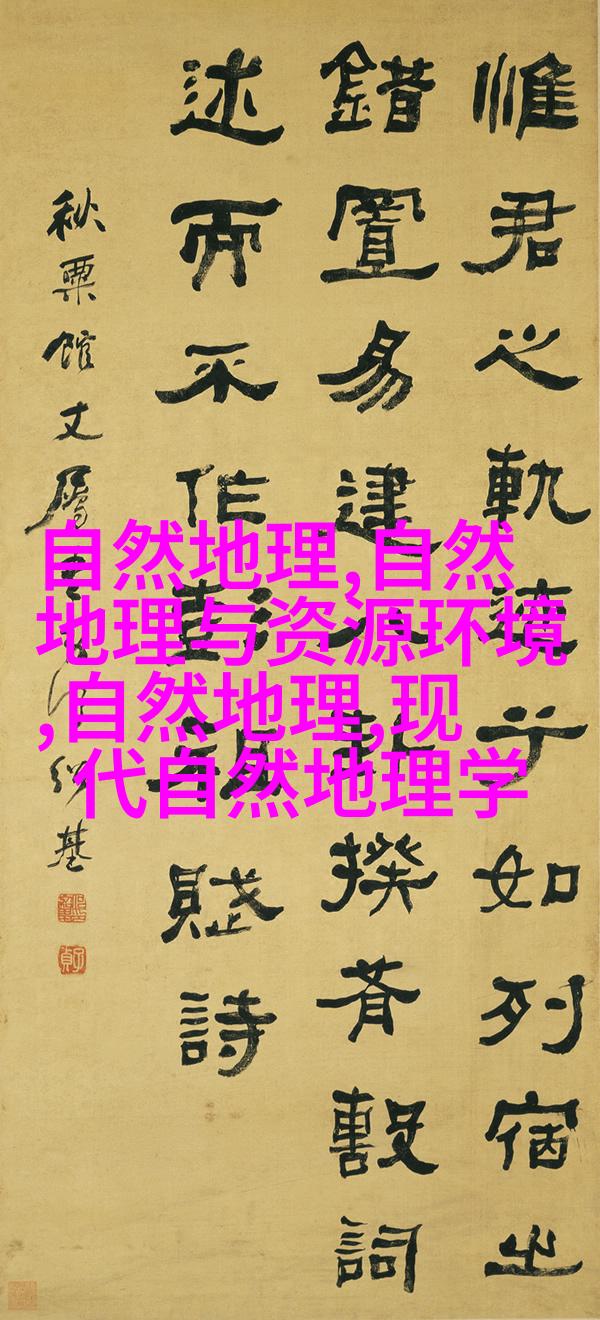 惟君之軌迹兮如列宿之
錯置易建八卦揆肴繫詞
述而不作彭祖賦詩
秋粟館丈屬 紹基
自然地理,自然
地理与资源环境
,自然地理,现
代自然地理学